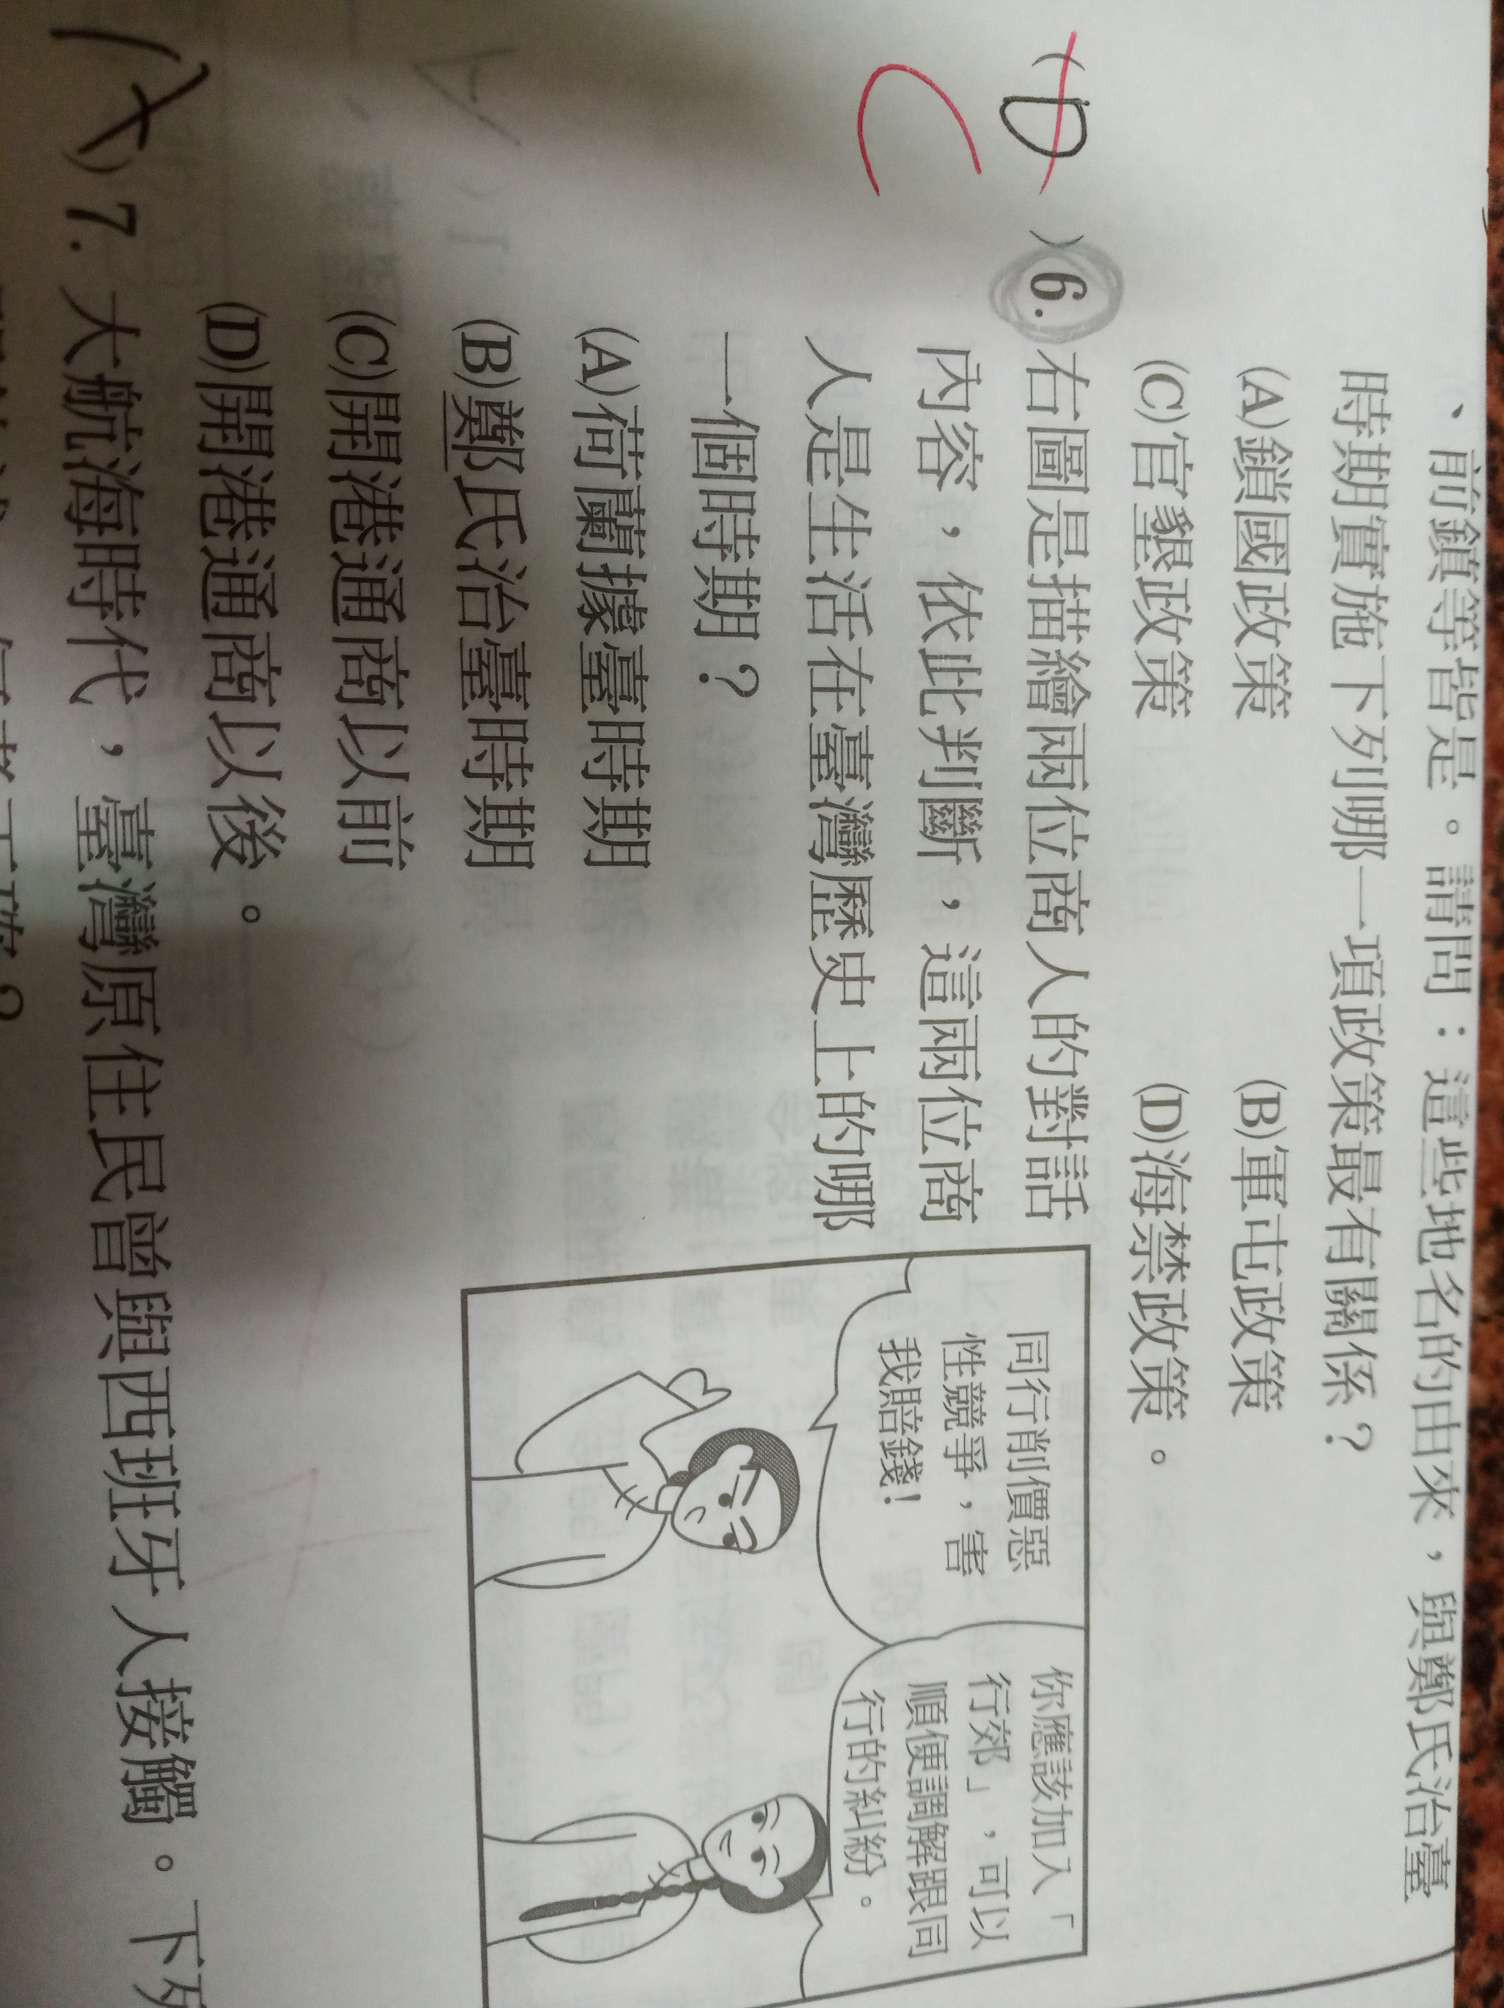 、前鎮等皆是。請問：這些地名的由來，與鄭氏治臺
時期實施下列哪一項政策最有關係？
(A)鎖國政策 (B)軍屯政策
(C)官墾政策 (D)海禁政策。
(D)6.右圖是描繪兩位商人的對話
C
內容，依此判斷，這兩位商
人是生活在臺灣歷史上的哪
一個時期？
(A)荷蘭據臺時期
(B)鄭氏治臺時期
(C)開港通商以前
(D)開港通商以後。
同行削價惡
性競爭，害
我賠錢！
你應該加入「
行郊」，可以
順便調解跟同
行的糾紛。
)7.大航海時代，臺灣原住民曾與西班牙人接觸。下列